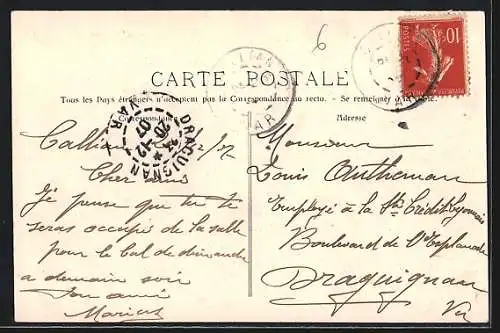 6
CARTE POSTALE
Tous les Pays étrangers n'acceptent pas la Correspondance au recto. - Se renseigner à la Poste.
Correspondance
Adresse
10
POSTES
DRAGUIGNAN
VAR
07
Callian
Cher ami
Je pense que tu te
seras occupé de la salle
pour le bal de dimanche
a demain soir
Ton ami
Marius
Monsieur
Louis Autheman
Employé à la Sté Crédit Lyonnais
Boulevard de l'Esplanade
Draguignan
Var